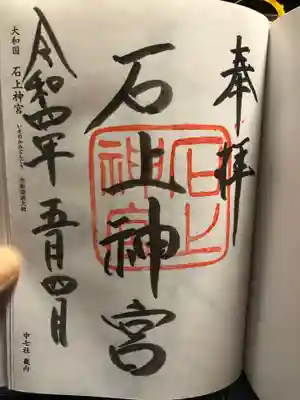 奉拝
石上神宮
石上
神宮
令和四年 五月四日
大和国 石上神宮 いそのかみじんぐう
中七社 畿内